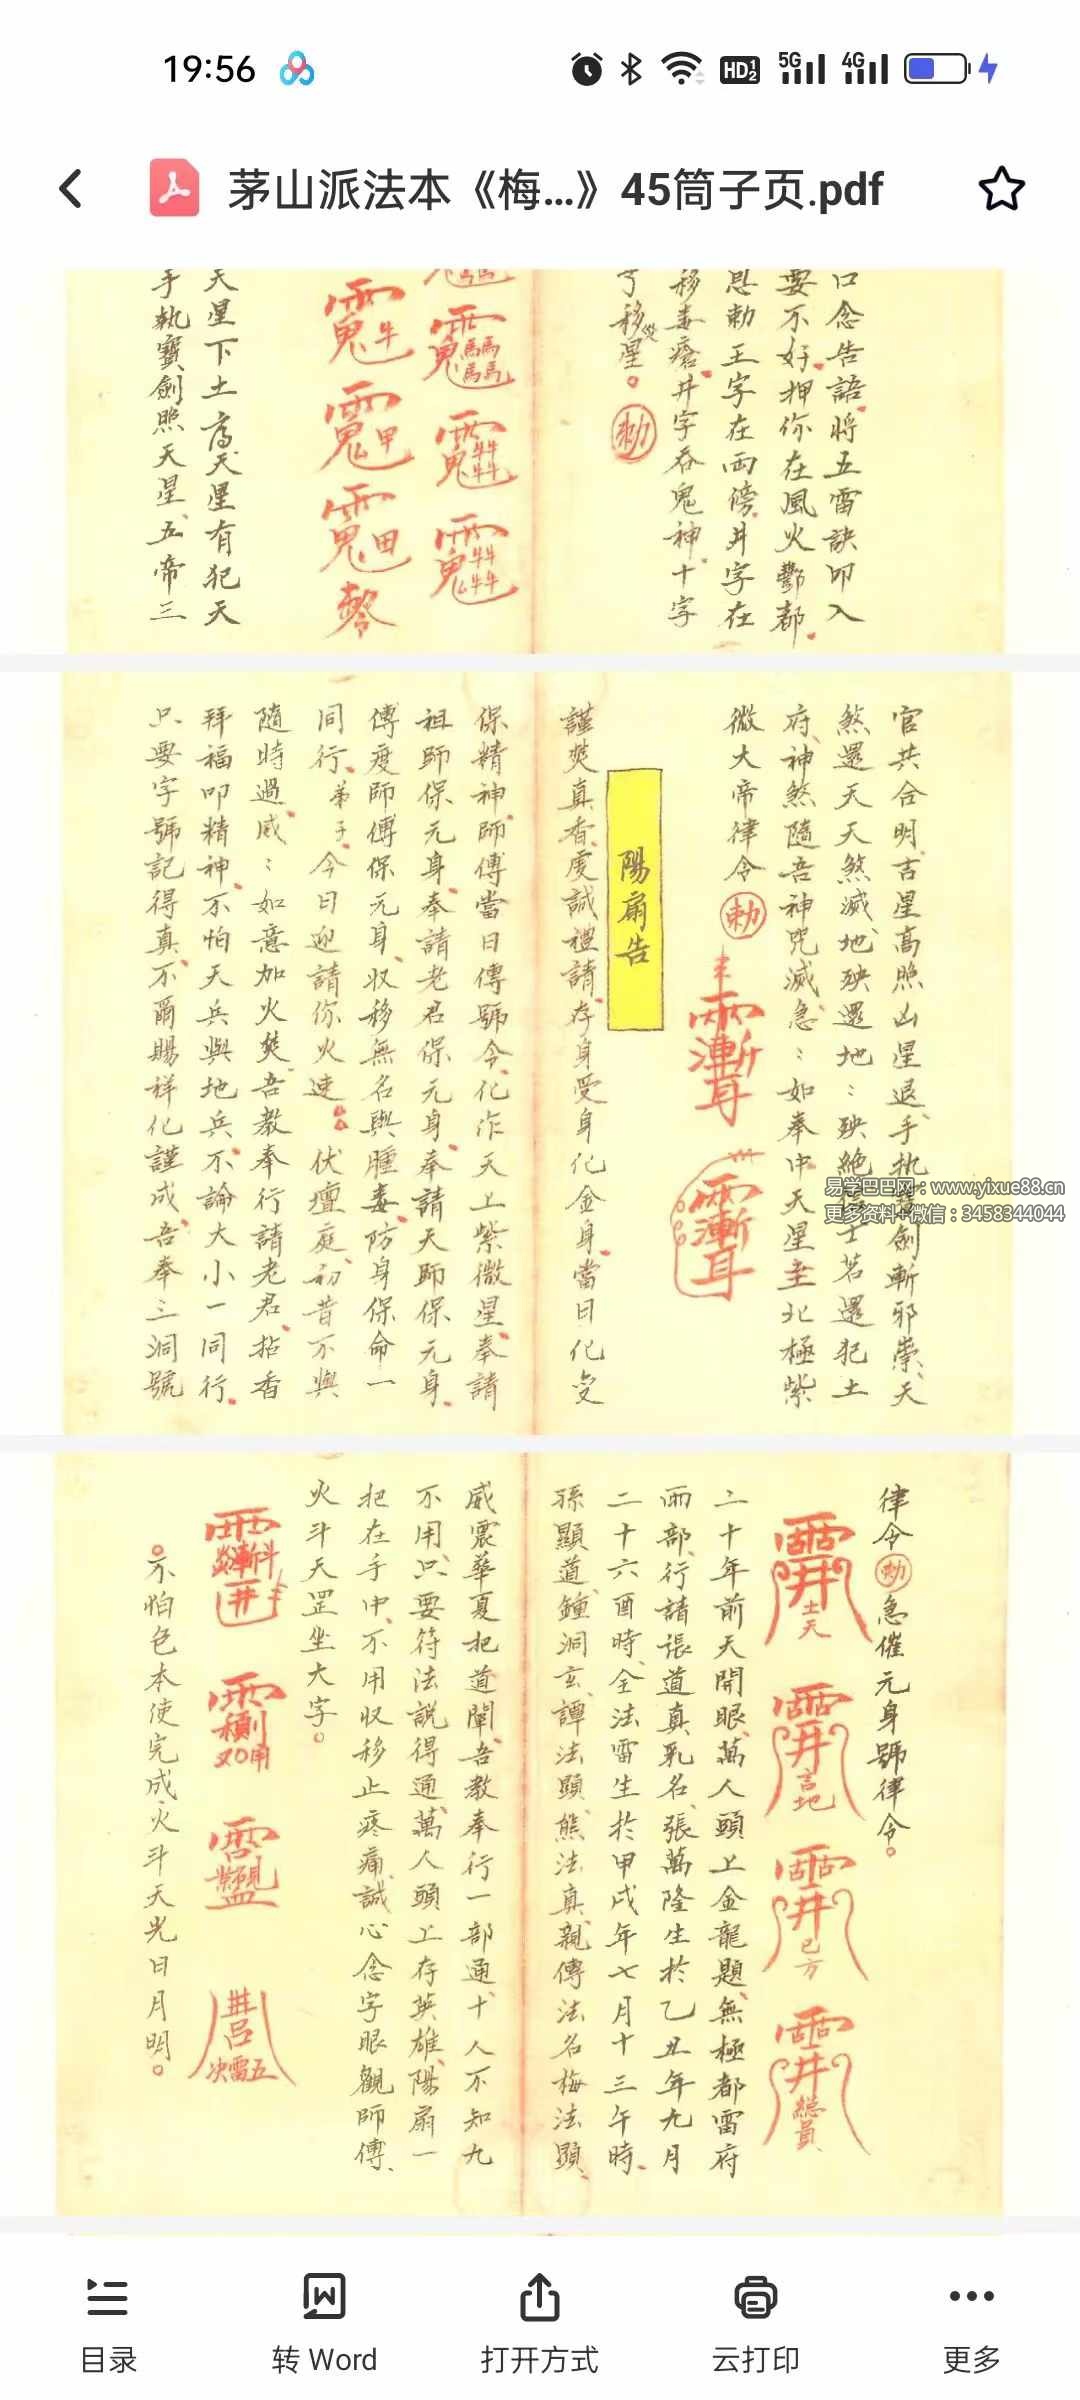 19:56
HD 1 2 5G 4G
茅山派法本《梅...》45筒子页.pdf
口念告語將五雷訣叩入
要不好押你在風火酆都
息勅王字在両傍井字在
移毒瘡井字吞鬼神十字
移星。勅
天星下土高天星有犯天
手執寶劍照天星五帝三
官共合明吉星高照凶星退手执寶劍斬邪祟天
煞還天天煞滅地殃還地:殃絕信士茗還犯土
府神煞隨吾神咒滅急:如奉中天星主北極紫
微大帝律令勅
陽扇告
謹焚真香虔誠禮請存身受身化金身當日化变
保精神師傅當日傳號令化作天上紫微星奉請
祖師保元身奉請老君保元身奉請天師保元身
傳度師傅保元身収移無名與腫毒防身保命一
同行弟子今日迎請你火速伏壇庭初昔不與
隨時過威:如意加火焚吾教奉行請老君拈香
拜福叩精神不怕天兵與地兵不論大小一同行
只要字號記得真不爾賜祥化謹成吾奉三洞號
律令勅急催元身號律令。
二十年前天開眼萬人頭上金龍題無極都雷府
両部行請張道真乳名張萬隆生於乙丑年九月
二十六酉時全法雷生於甲戌年七月十三午時
孫顯道鐘洞玄譚法顕熊法真親傳法名梅法顕
威震華夏把道闡吾教奉行一部通十人不知九
不用只要符法説得通萬人頭上存英雄陽扇一
把在手中不用収移止疼痛誠心念字眼觀師傅
火斗天罡坐大字。
。不怕色本使完成火斗天光日月明。
易学巴巴网：www.yixue88.cn
更多资料+微信：3458344044
目录
转 Word
打开方式
云打印
更多